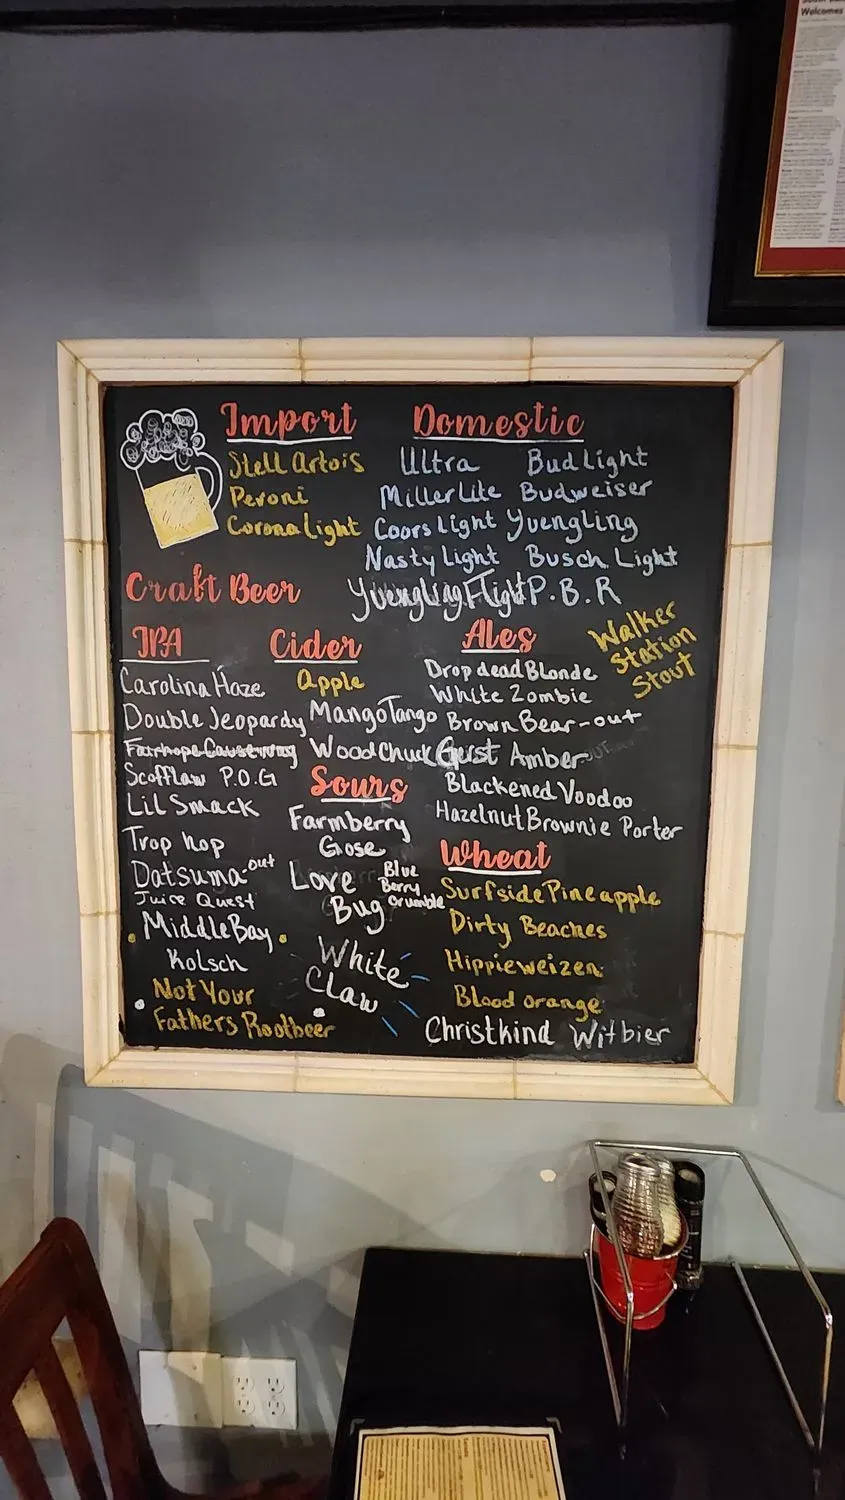 Welcomes
Import
Stell Artois
Peroni
Corona Light
Domestic
Ultra Bud Light
Miller Lite Budweiser
Coors Light Yuengling
Nasty Light Busch Light
Yuengling Flight P.B.R
Craft Beer
IPA
Carolina Haze
Double Jeopardy
Fairhope Causeway
Scofflaw P.O.G
Lil Smack
Trop hop
Datsuma-out
Juice Quest
Middle Bay
Kolsch
Not Your
Fathers Rootbeer
Cider
Apple
Mango Tango
Wood Chuck
Sours
Farmberry
Gose
Love
Bug
Blue
Berry
Crumble
White
Claw
Ales
Drop dead Blonde
White Zombie
Brown Bear-out
Geist Amber
Blackened Voodoo
Hazelnut Brownie Porter
Walker
Station
Stout
Wheat
Surfside Pineapple
Dirty Beaches
Hippieweizen
Blood orange
Christkind Witbier